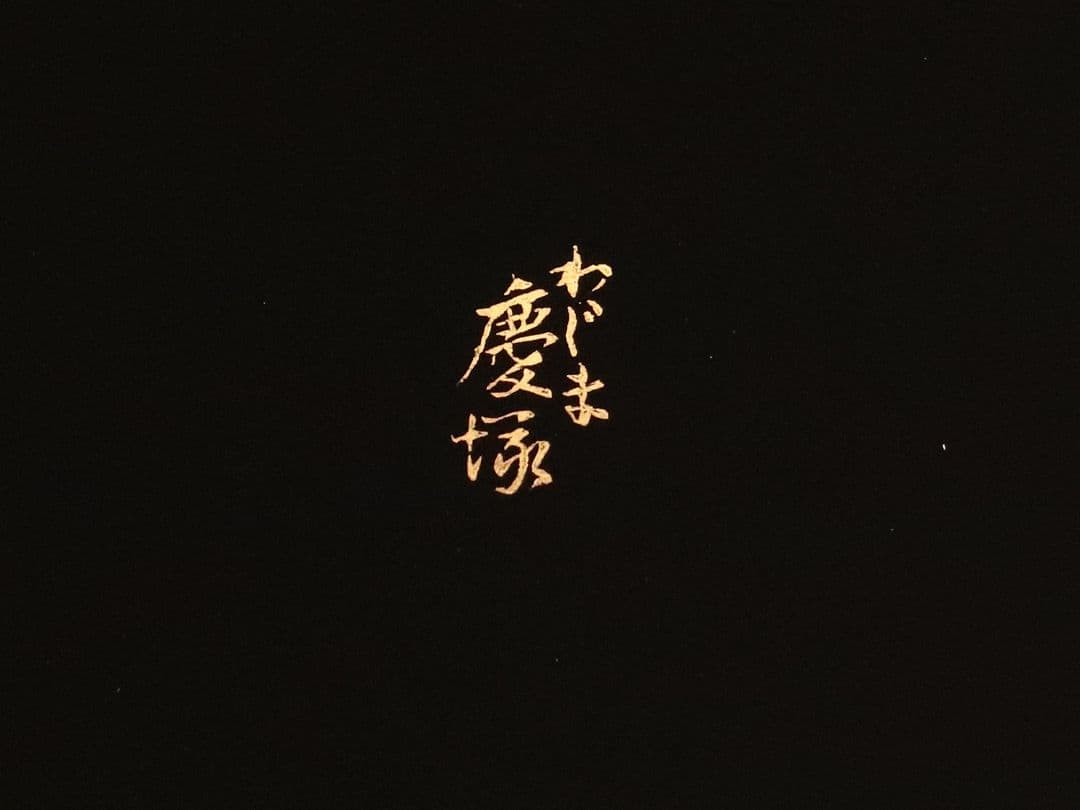 わじま
慶塚